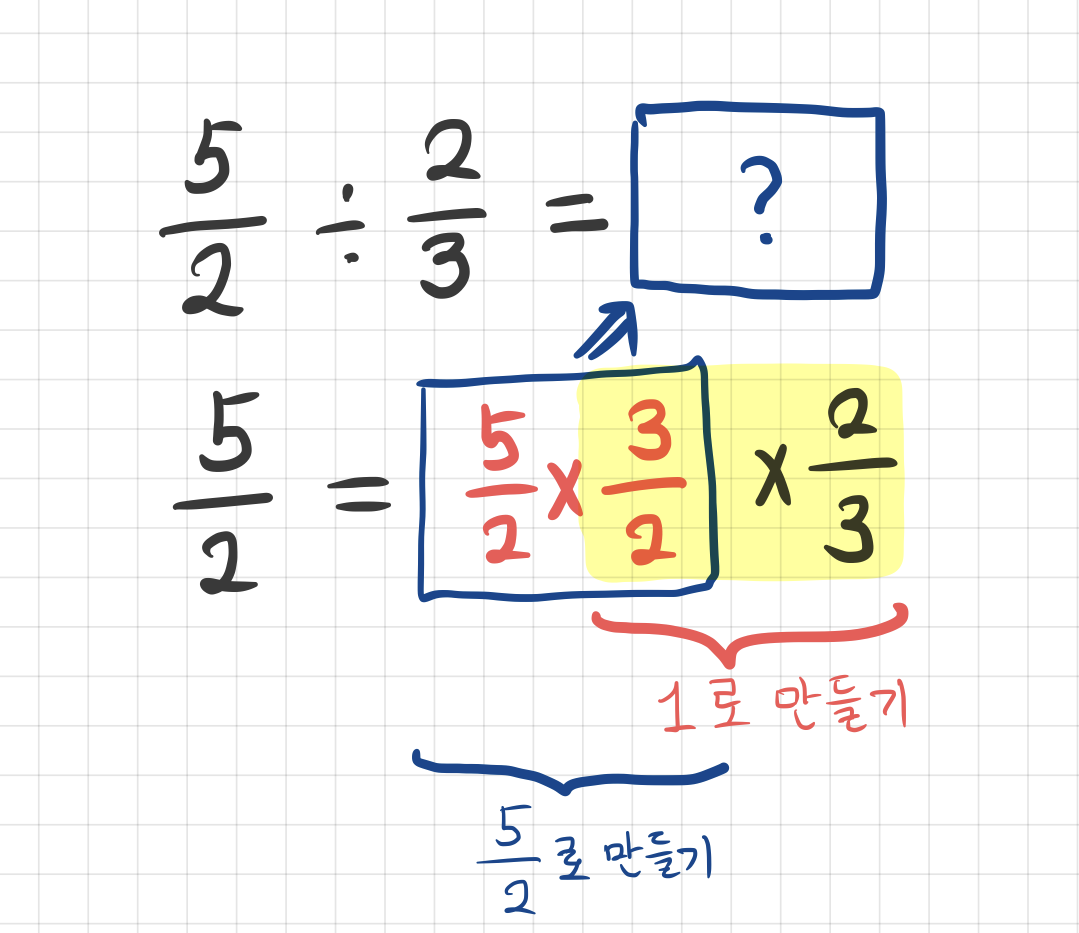 5/2 ÷ 2/3 = ?
5/2 = 5/2 × 3/2 × 2/3
1로 만들기
5/2 로 만들기